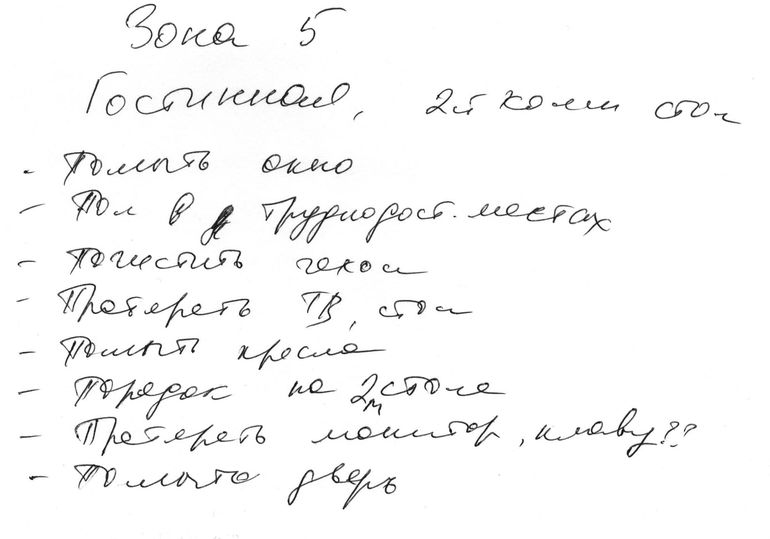 Зона 5
Гостинная, 2й комп стол
- Помыть окно
- Пол в труднодост. местах
- Почистить чехол
- Протереть ТВ, стол
- Помыть кресла
- Порядок на 2м столе
- Протереть монитор, клаву??
- Помыть дверь